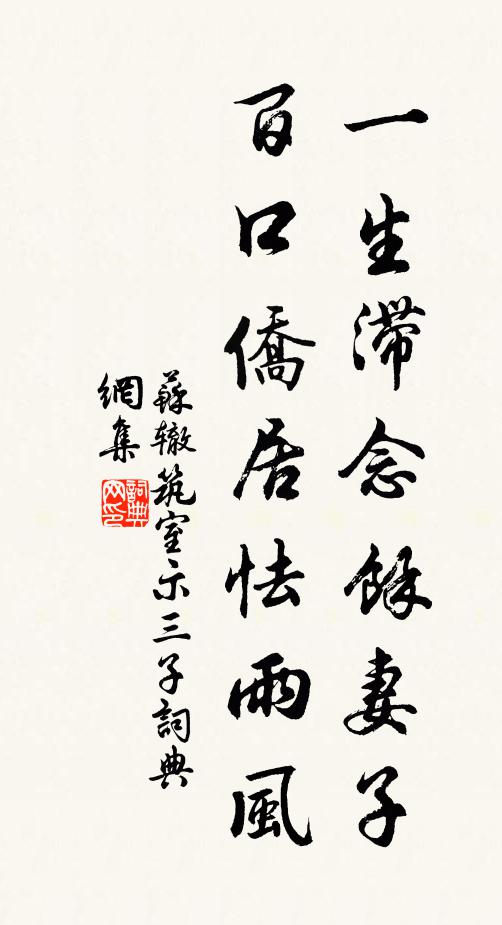 一生滯念餘妻子
百口僑居怯雨風
蘇辙筑室示三子詞典
網集
詞典網印